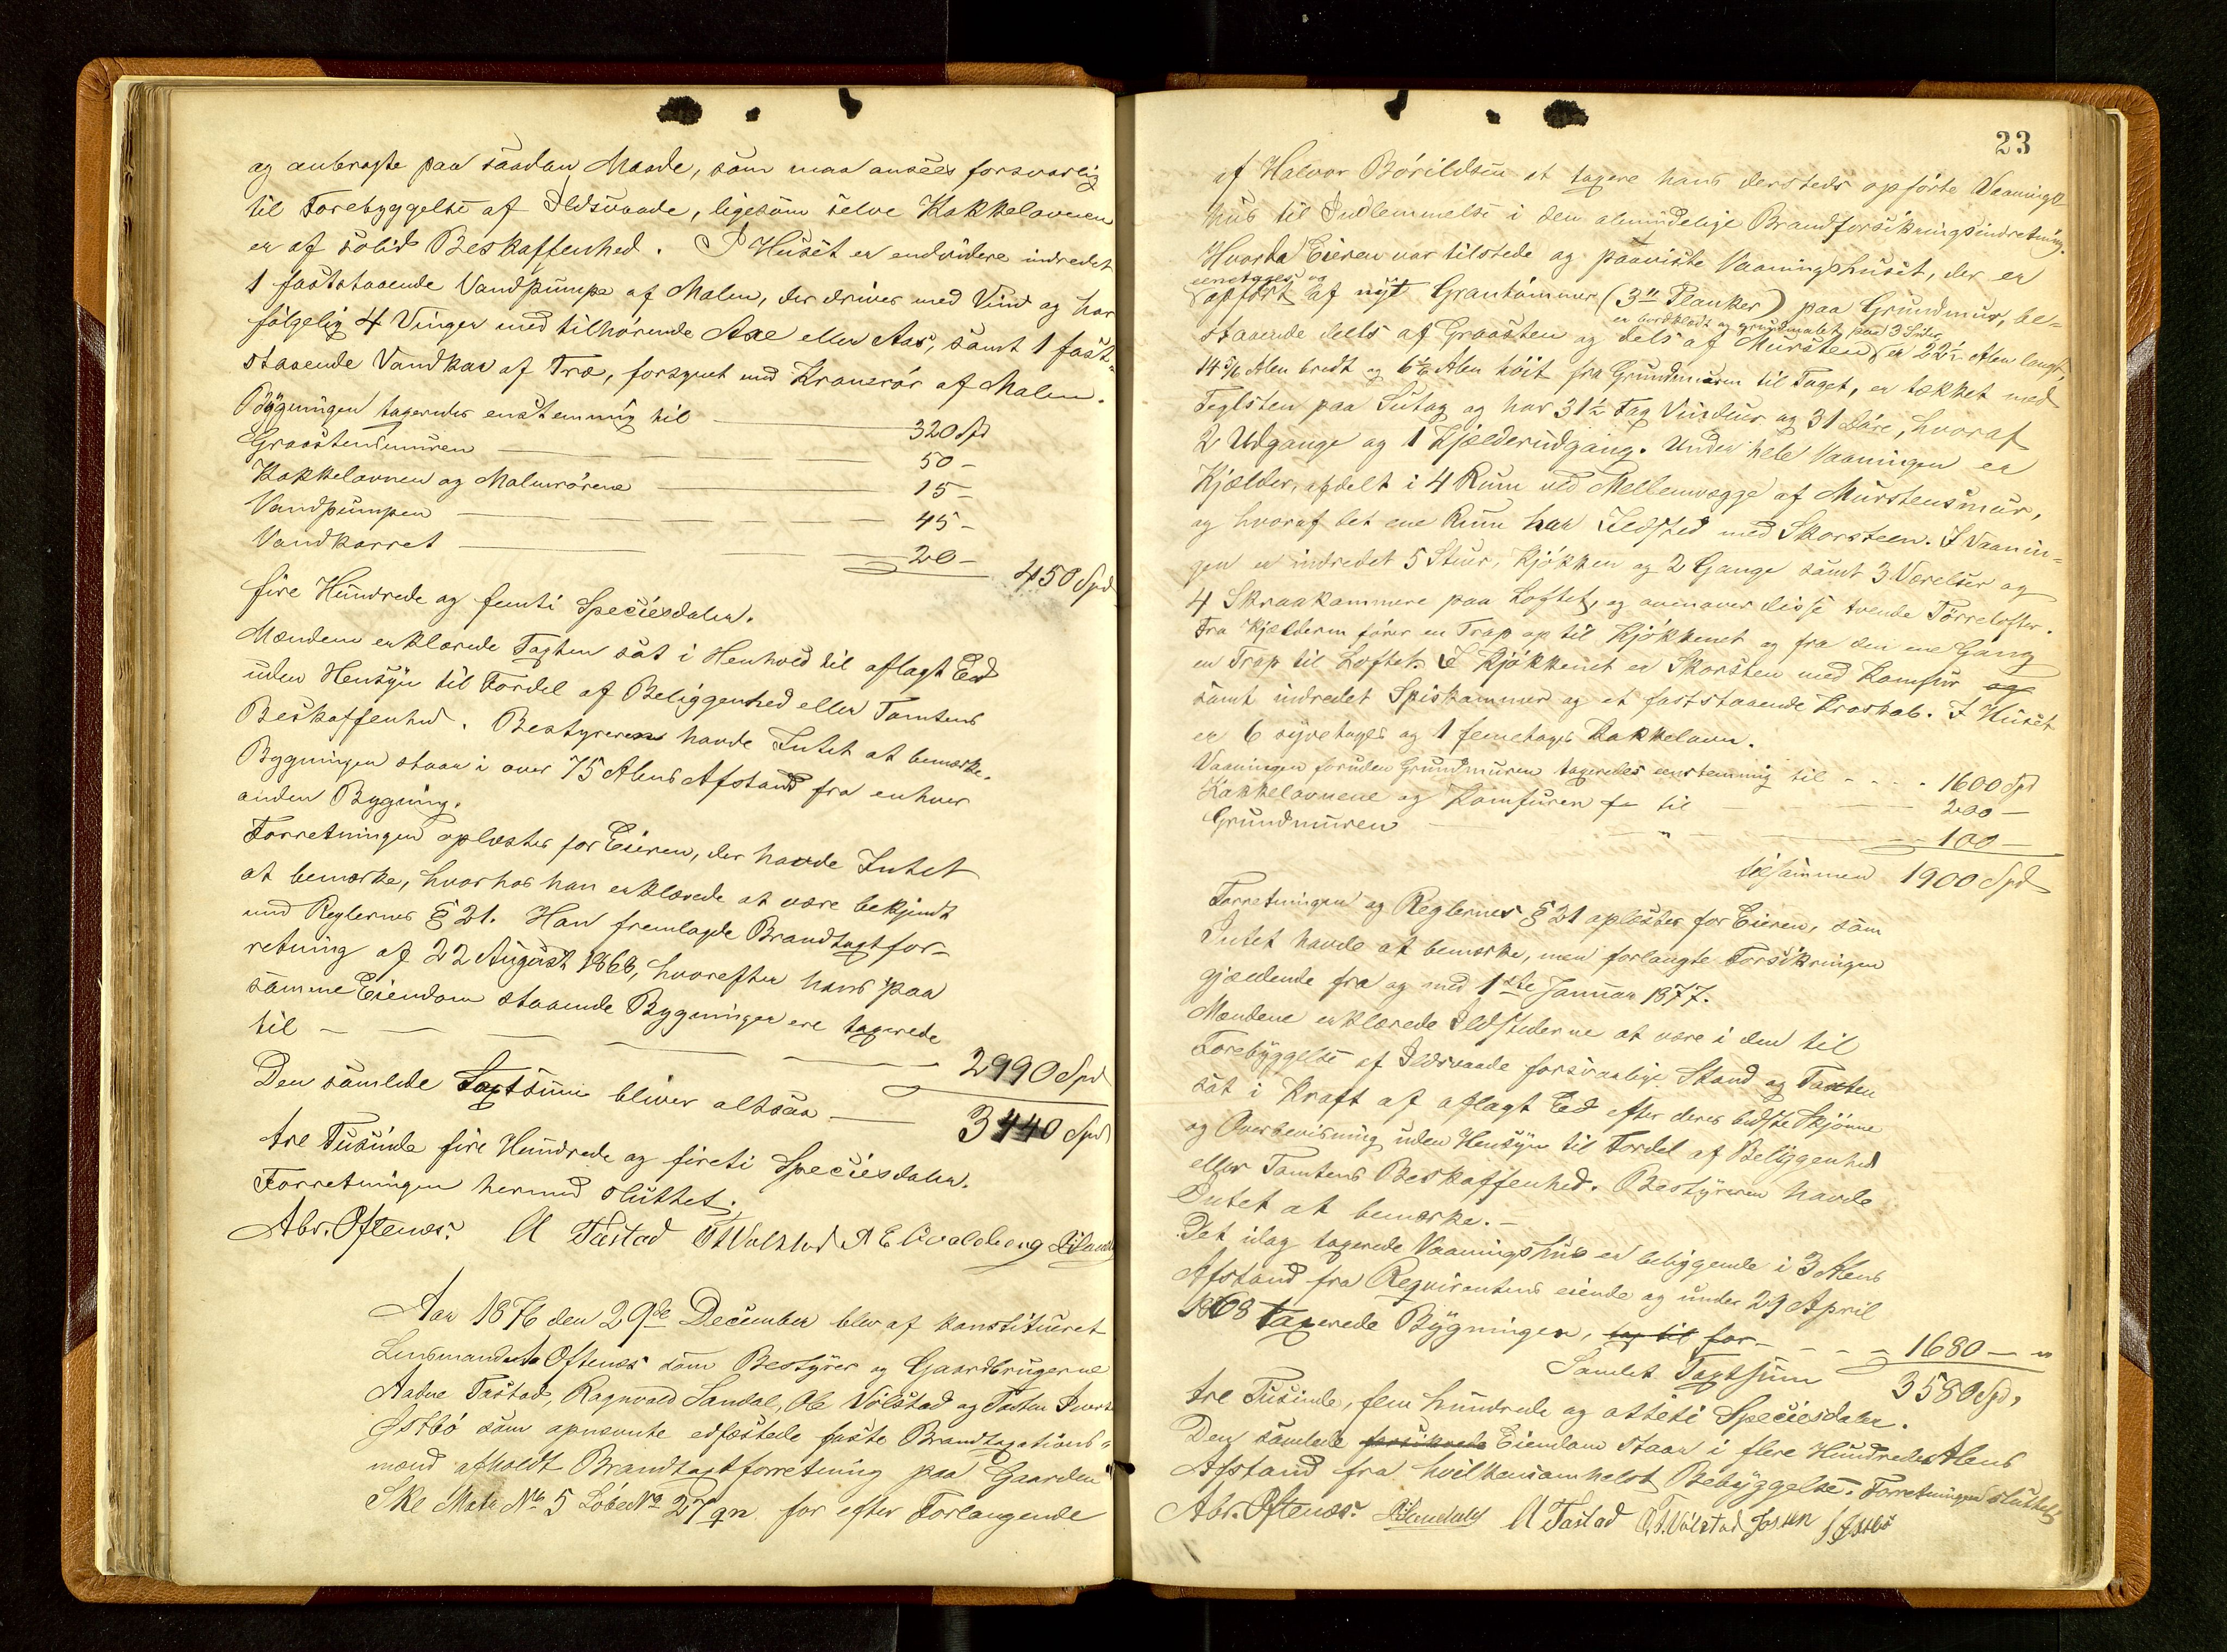 og anbragte paa saadan Maade, som maa ansees forsvarlig
til Forebyggelse af Ildsvaade, ligesom selve Kakkelovnen
er af solid Beskaffenhed. I Huset er endvidere indredet
1 faststaaende Vandpumpe af Malm, der drives med Vind og har
følgelig 4 Vinger med tilhørende Axe eller Aas, samt 1 fast-
staaende Vandkar af Træ, forsynet med Kranrør af Malm.
Bygningen taxeredes enstemmig til 320 Spd
Graastensmuren 50 -
Kakkelovnen og Malmrørene 15 -
Vandpumpen 45 -
Vandkarret 20 - 450 Spd
fire Hundrede og femti Speciesdaler.
Mændene erklærede Taxten sat i Henhold til aflagt Ed
uden Hensyn til Fordel af Beliggenhed eller Tomtens
Beskaffenhed. Bestyreren havde Intet at bemærke.
Bygningen staar i over 75 Alens Afstand fra enhver
anden Bygning.
Forretningen oplæstes for Eieren, der havde Intet
at bemærke, hvorhos han erklærede at være bekjendt
med Reglernes § 21. Han fremlagde Brandtaxtfor-
retning af 22 August 1868, hvorefter hans paa
samme Eiendom staaende Bygninger ere taxerede
til 2990 Spd
Den samlede Taxtsum bliver altsaa 3440 Spd
tre Tusinde fire Hundrede og fireti Speciesdaler.
Forretningen hermed sluttet.
Abr. Oftenæs. A Tastad O T Volstad
Aar 1876 den 29de December blev af konstitueret
Lensmand A Oftenæs som Bestyrer og Gaardbrugerne
Aadne Tastad, Ragnvald Sandal, Ole Volstad og
Østbø som opnævnte edfæstede faste Brandtaxations-
mænd afholdt Brandtaxtforretning paa Gaarden
Matr No 5 Løbe No 27 for efter Forlangende
23
af Halvor Bórildsen at taxere hans dersteds opførte Vaanings-
hus til Indlemmelse i den almindelige Brandforsikringsindretning.
Hvorda Eieren var tilstede og paaviste Vaaningshuset, der er
eenetages og
opført af nyt Grantømmer (3" Planker) paa Grundmur, be-
er bordklædt og grundmalet paa 3 Sider
staaende dels af Graasten og dels af Mursten, er 22½ Alen langt,
14 Alen bredt og 6½ Alen høit fra Grundmuren til Taget, er tækket med
Teglsten paa Sutag og har 31½ Fag Vinduer og 31 Døre, hvoraf
2 Udgange og 1 Kjælderudgang. Under hele Vaaningen er
Kjælder, afdelt i 4 Rum ved Mellemvægge af Murstensmur,
og hvoraf det ene Rum har Ildsted med Skorsteen. I Vaanin-
gen er indredet 5 Stuer, Kjøkken og 2 Gange samt 3 Værelser og
4 Skraakammere paa Loftet, og ovenover disse tvende Tørrelofter.
Fra Kjælderen fører en Trap op til Kjøkkenet og fra den ene Gang
en Trap til Loftet. I Kjøkkenet er Skorsten med Komfur og
samt indredet Spiskammer og et faststaaende Kraskab. I Huset
er 6 syvetages og 1 femetages Kakkelovn.
Vaaningen foruden Grundmuren taxeredes eenstemmig til 1600 Spd
Kakkelovnene og Komfuren til 200 -
Grundmuren " 100 -
tilsammen 1900 Spd
Forretningen og Reglernes § 21 oplæstes for Eieren, som
Intet havde at bemærke, men forlangte Forsikringen
gjældende fra og med 1ste Januar 1877.
Mændene erklærede Ildstederne at være i den til
Forebyggelse af Ildsvaade forsvarlige Stand og Taxten
sat i Kraft af aflagt Ed efter deres bedste Skjønne
og Overbevisning uden Hensyn til Fordel af Beliggenhed
eller Tomtens Beskaffenhed. Bestyreren havde
Intet at bemærke. -
Det idag taxerede Vaaningshus er beliggende i 3 Alens
Afstand fra Requirentens eiende og under 29 April
1868 taxerede Bygninger, tax til for 1680 - "
Samlet Taxtsum 3580 Spd,
tre Tusinde, fem hundrede og otteti Speciesdaler.
Den samlede forsikrede Eiendom staar i flere Hundrede Alens
Afstand fra hvilkensomhelst Bebyggelse. Forretningen sluttet
Abr. Oftenæs. A Tastad O. T. Volstad